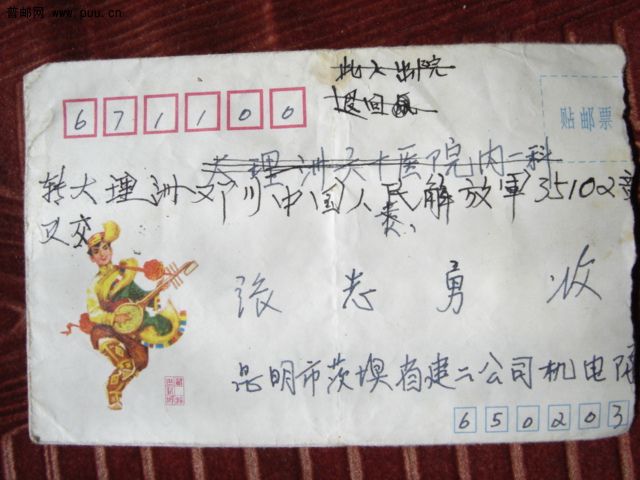 普邮网 www.puu.cn
此人出院
退回
671100
贴邮票
大理洲天十医院内二科
转大理洲邓川中国人民解放軍35102
又交
张志勇 收
昆明市茨坝省建二公司机电队
650203